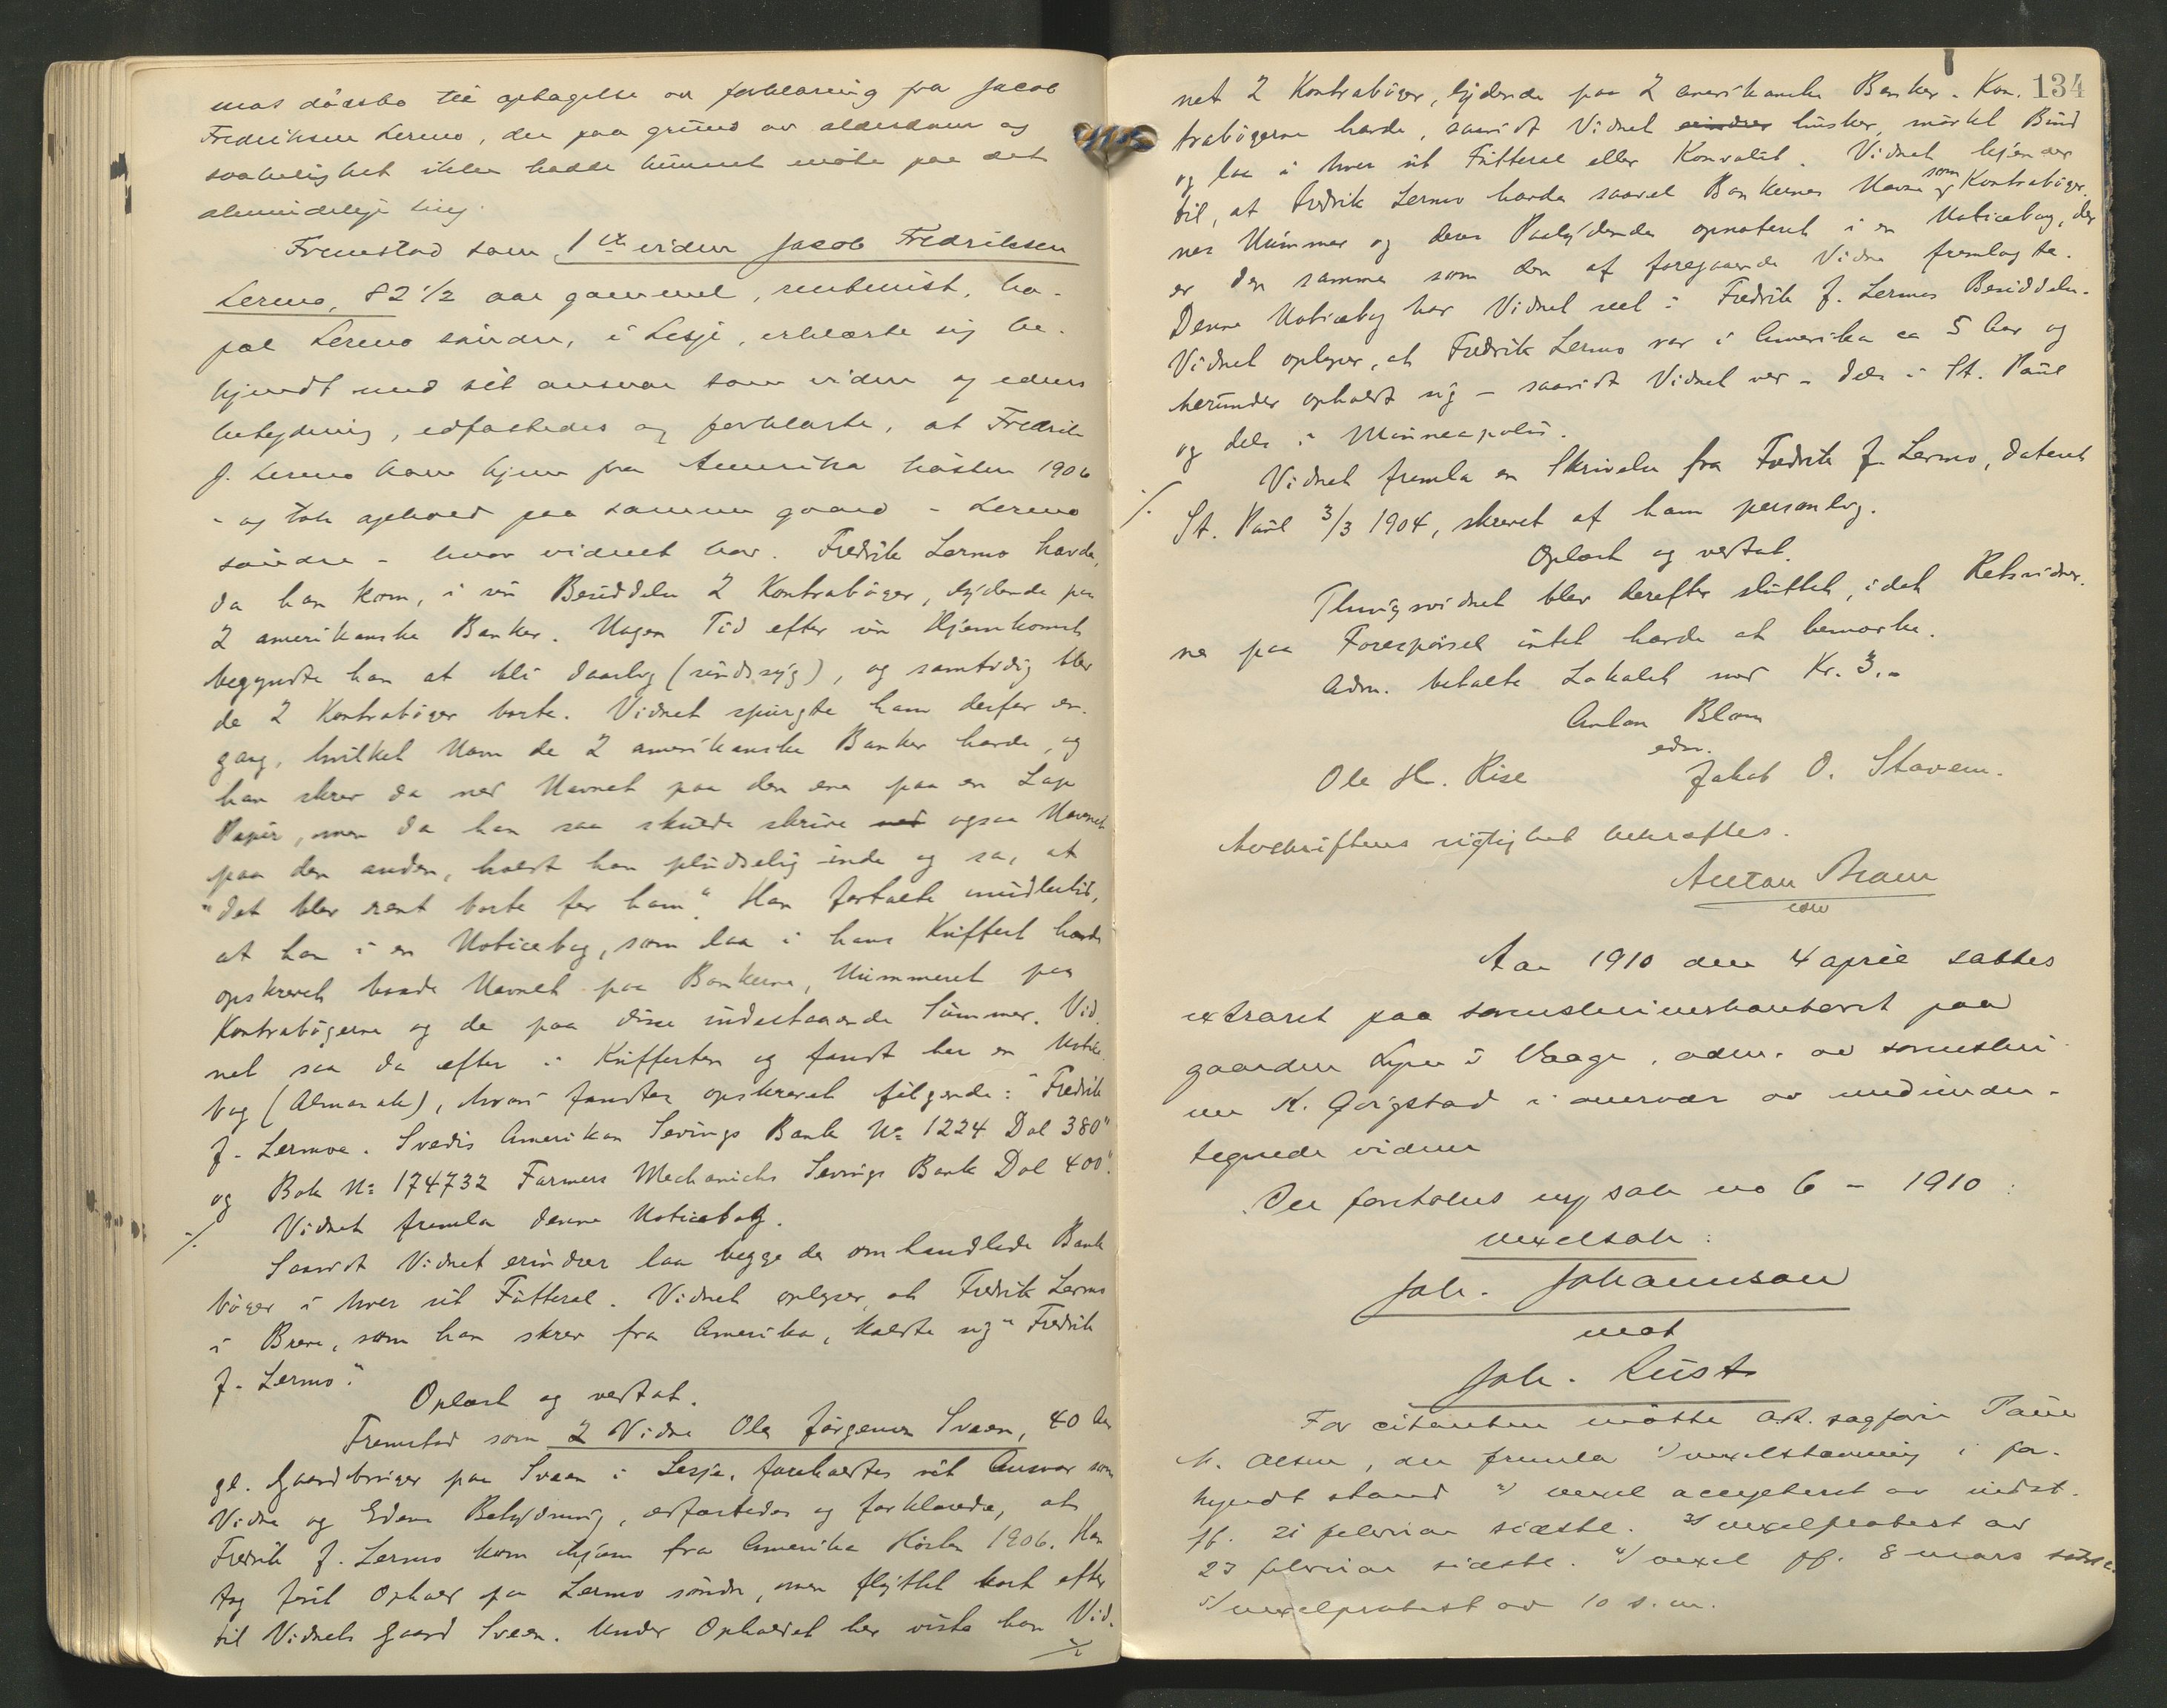 mos dødsbo til optagelse av forklaring fra Jacob
Fredriksen Lermo, der paa grund av alderdom og
svakelighet ikke hadde kunnet møte paa det
almindelige ting.
Fremstod som 1ste vidne Jacob Fredriksen
Lermo, 82 1/2 aar gammel, rentenist, bo-
pæl Lermo søndre, i Lesje, erklærte sig be-
kjendt med sit ansvar som vidne og edens
betydning, edfæstedes og forklarte, at Fredrik
J. Lermo kom hjem fra Amerika høsten 1906
- og tok ophold paa samme gaard - Lermo
søndre - hvor vidnet bor. Fredrik Lermo havde,
da han kom, i sin Besiddelse 2 Kontrabøger, lydende paa
2 amerikanske Banker. Nogen Tid efter sin Hjemkomst
begyndte han at bli daarlig (sindssyg), og samtidig blev
de 2 Kontrabøger borte. Vidnet spurgte ham derfor en-
gang, hvilket Navn de 2 amerikanske Banker havde, og
han skrev da ned Navnet paa den ene paa en Lap
Papir, men da han saa skulde skrive ned ogsaa Navnet
paa den anden, holdt han pludselig inde og sa, at
"det blev rent borte for ham". Han fortalte imidlertid,
at han i en Noticebog, som laa i hans Kuffert havde
opskrevet baade Navnet paa Bankerne, Nummeret paa
Kontrabøgerne og de paa disse indestaaende Summer. Vid-
net saa da efter i Kufferten og fandt her en Notice-
bog (Almanak), hvori fandtes opskrevet følgende: "Fredrik
J. Lermoe. Svedis Amerikan Sevings Bank No 1224 Dol 380"
og Bok No 174732 Farmers Mechanichs Sevings Bank Dol 400".
·/. Vidnet fremla denne Noticebog.
Saavidt Vidnet erindrer laa begge de omhandlede Bank-
bøger i hver sit Futteral. Vidnet oplyser, at Fredrik Lermo
i Breve, som han skrev fra Amerika, kaldte sig "Fredrik
J. Lermo".
Oplæst og vedtat.
Fremstod som 2 Vidne Ole Jørgensen Sveen, 40 Aar
gl. Gaardbruger paa Sveen i Lesje, foreholdtes sit Ansvar som
Vidne og Edens Betydning, edfæstedes og forklarede, at
Fredrik J. Lermo kom hjem fra Amerika Høsten 1906. Han
tog først Ophold paa Lermo søndre, men flyttet kort efter
til Vidnets Gaard Sveen. Under Opholdet her viste han Vid-
·/.
134
net 2 Kontrabøger, lydende paa 2 amerikanske Banker. Kon-
trabøgerne havde, saavidt Vidnet erindrer husker, mørkt Bind
og laa i hver sit Futteral eller Konvolut. Vidnet kjender
til, at Fredrik Lermo havde saavel Bankernes Navne som og Kontrabøger-
nes Nummer og deres Paalydende opnoteret i en Noticebog, der
er den samme som den af foregaaende Vidne fremlagte.
Denne Noticebog har Vidnet seet i Fredrik J. Lermos Besiddelse.
Vidnet oplyser, at Fredrik Lermo var i Amerika ca 5 Aar og
herunder opholdt sig - saavidt Vidnet ved - dels i St. Paul
og dels i Minneapolis.
Vidnet fremla en Skrivelse fra Fredrik J. Lermo, dateret
·/. St. Paul 3/3 1904, skrevet af ham personlig.
Oplæst og vedtat.
Thingsvidnet blev derefter sluttet, idet Retsvidner-
ne paa Forespørsel intet havde at bemærke.
Adm. betalte Lokalet med Kr. 3.-
Anton Blom
edsv.
Ole H. Rise Jakob O. Stavem.
Avskriftens rigtighet bekræftes.
Anton Blom
edsv
Aar 1910 den 4 april sattes
extraret paa sorenskriverkontoret paa
gaarden i Vaage, adm. av sorenskri-
ver K. Qvigstad i overvær av medunder-
tegnede vidner
Der foretokes ny sak no 6 - 1910:
vexelsak:
Joh. Johannson
mot
Joh. Rust
For citanten møtte O.R. sagfører Paul
M. Olsen, der fremla 1/ vexelstævning i for-
kyndt stand 2/ vexel accepteret av indst.
pf. 21 februar sidstl. 3/ vexelprotest av
23 februar sidstl. 4/ vexel pf. 8 mars sidstl.
5/ vexelprotest av 10 s.m.